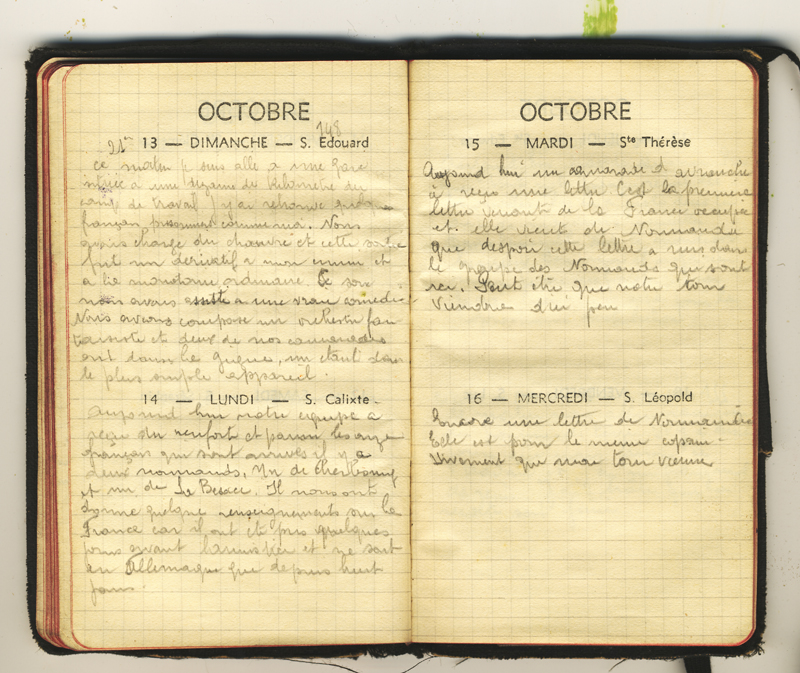 OCTOBRE
21e 148
13 — DIMANCHE — S. Edouard
ce matin je suis allé a une gare
située a une dizaine de kilometre du
camp de travail j'y ai retrouvé quelq
français prisonniers comme moi. Nous
avons chargé du chanvre et cette sortie
fut un dérivatif a mon ennui et
a la monotonie ordinaire. Ce soir
nous avons assisté a une vraie comédie
Nous avons composé un orchestre fan
taisiste et deux de nos camarades
ont dansé la gigue, un étant dans
le plus simple appareil.
14 — LUNDI — S. Calixte
Aujourd hui notre équipe a
reçu du renfort et parmi les onze
français qui sont arrivés il y a
deux normands, un de Cherbourg
et un de Le . Il nous ont
donné quelque renseignements sur la
France car il ont été pris quelques
jours avant l'armistice et ne sont
en Allemagne que depuis huit
jours.
OCTOBRE
15 — MARDI — Ste Thérèse
Aujourd hui un camarade d avranche
a reçu une lettre C'est la premiere
lettre venant de la France occupée
et elle vient de Normandie
que d'espoir cette lettre a mis dans
le groupe des Normands qui sont
ici. Peut être que notre tour
viendra d'ici peu
16 — MERCREDI — S. Léopold
Encore une lettre de Normandie
Elle est pour le meme copain.
Vivement que mon tour vienne